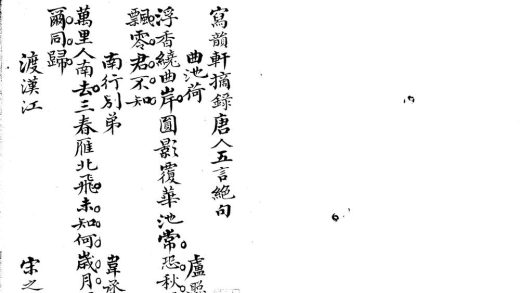 寫韻軒摘錄唐人五言絕句
曲池荷　盧照
浮香繞曲岸圓影覆華池常恐秋
飄零君不知
南行別弟　韋承
萬里人南去三春雁北飛未知何歲月
爾同歸
渡漢江　宋之